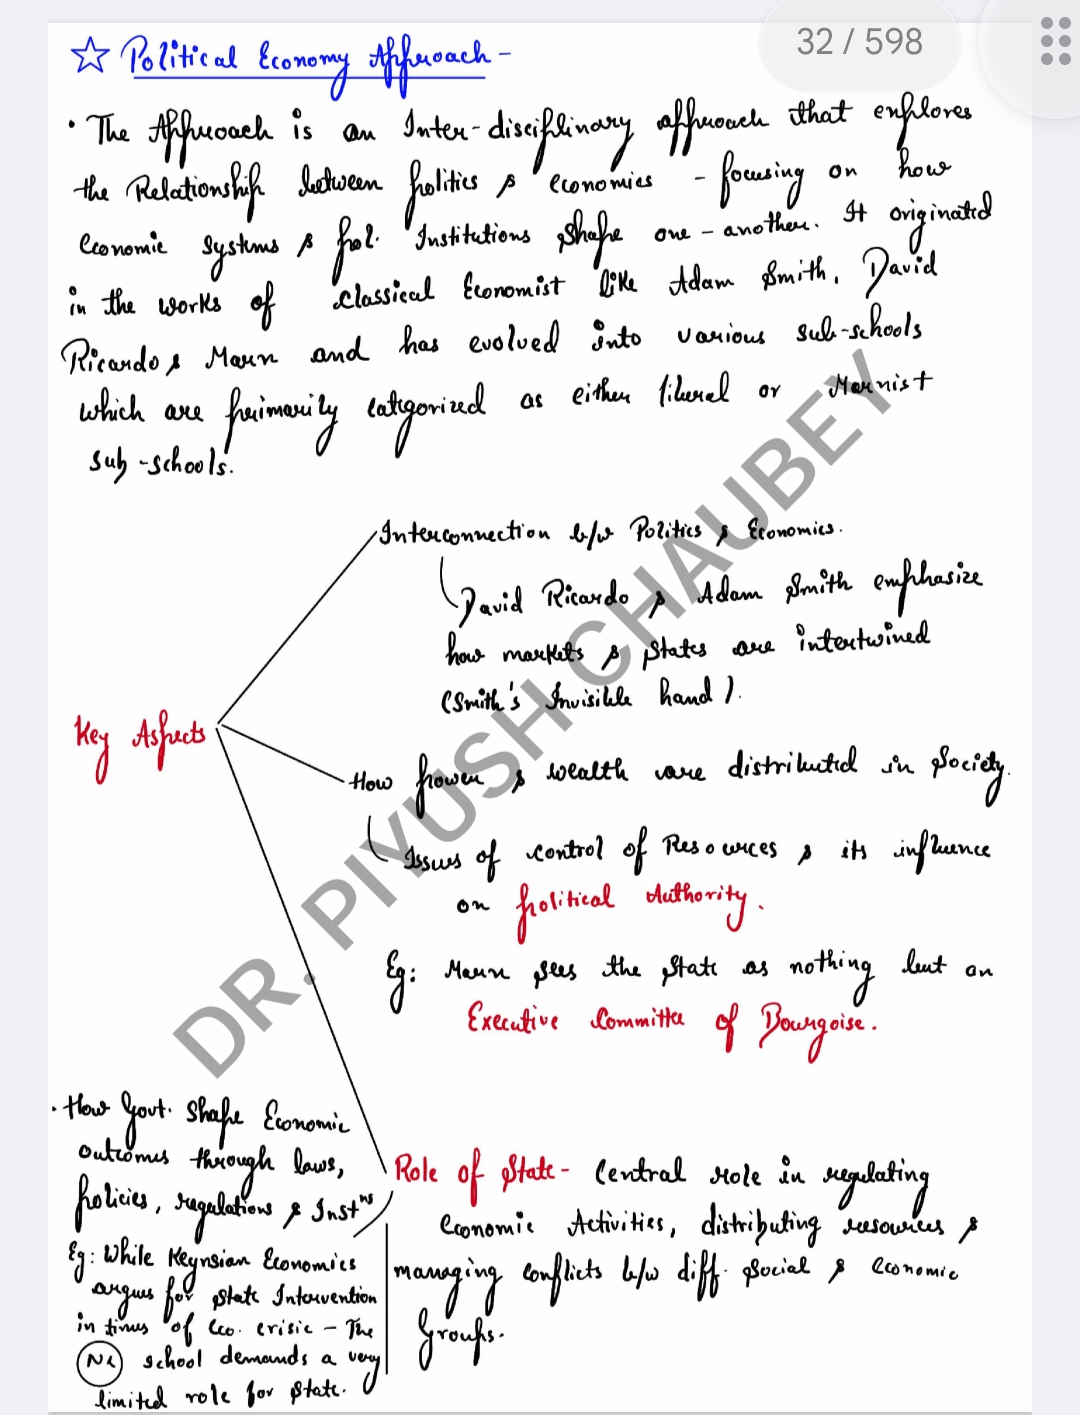 32 / 598
☆ Political Economy Approach -
• The Approach is an Inter-disciplinary approach that explores
the Relationship between politics & economics - focusing on how
Economic systems & pol. Institutions shape one - another. It originated
in the works of classical Economist like Adam Smith, David
Ricardo & Marx and has evolved into various sub-schools
which are primarily categorized as either liberal or Marxist
sub-schools.
Interconnection b/w Politics & Economics.
David Ricardo & Adam Smith emphasize
how markets & states are intertwined
(Smith's Invisible hand).
Key Aspects
How power & wealth are distributed in Society.
Issues of control of Resources & its influence
on political Authority.
Eg: Marx sees the State as nothing but an
Executive Committee of Bourgoise.
• How Govt. shape Economic
outcomes through laws,
policies, regulations & Instns
Eg: While Keynsian Economics
argues for state Intervention
in times of eco. crisic - The
NL school demands a very
limited role for state.
Role of State - Central role in regulating
economic Activities, distributing resources &
managing conflicts b/w diff. social & economic
Groups.
DR. PIYUSH CHAUBEY